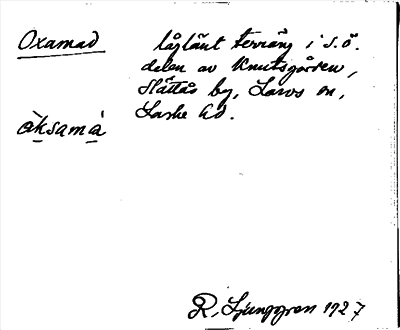 Oxamad låglänt terräng i s.ö.
delen av Knutsgården,
Slättås by, Larvs sn,
Laske hd.
àksamà
R. Ljunggren 1927